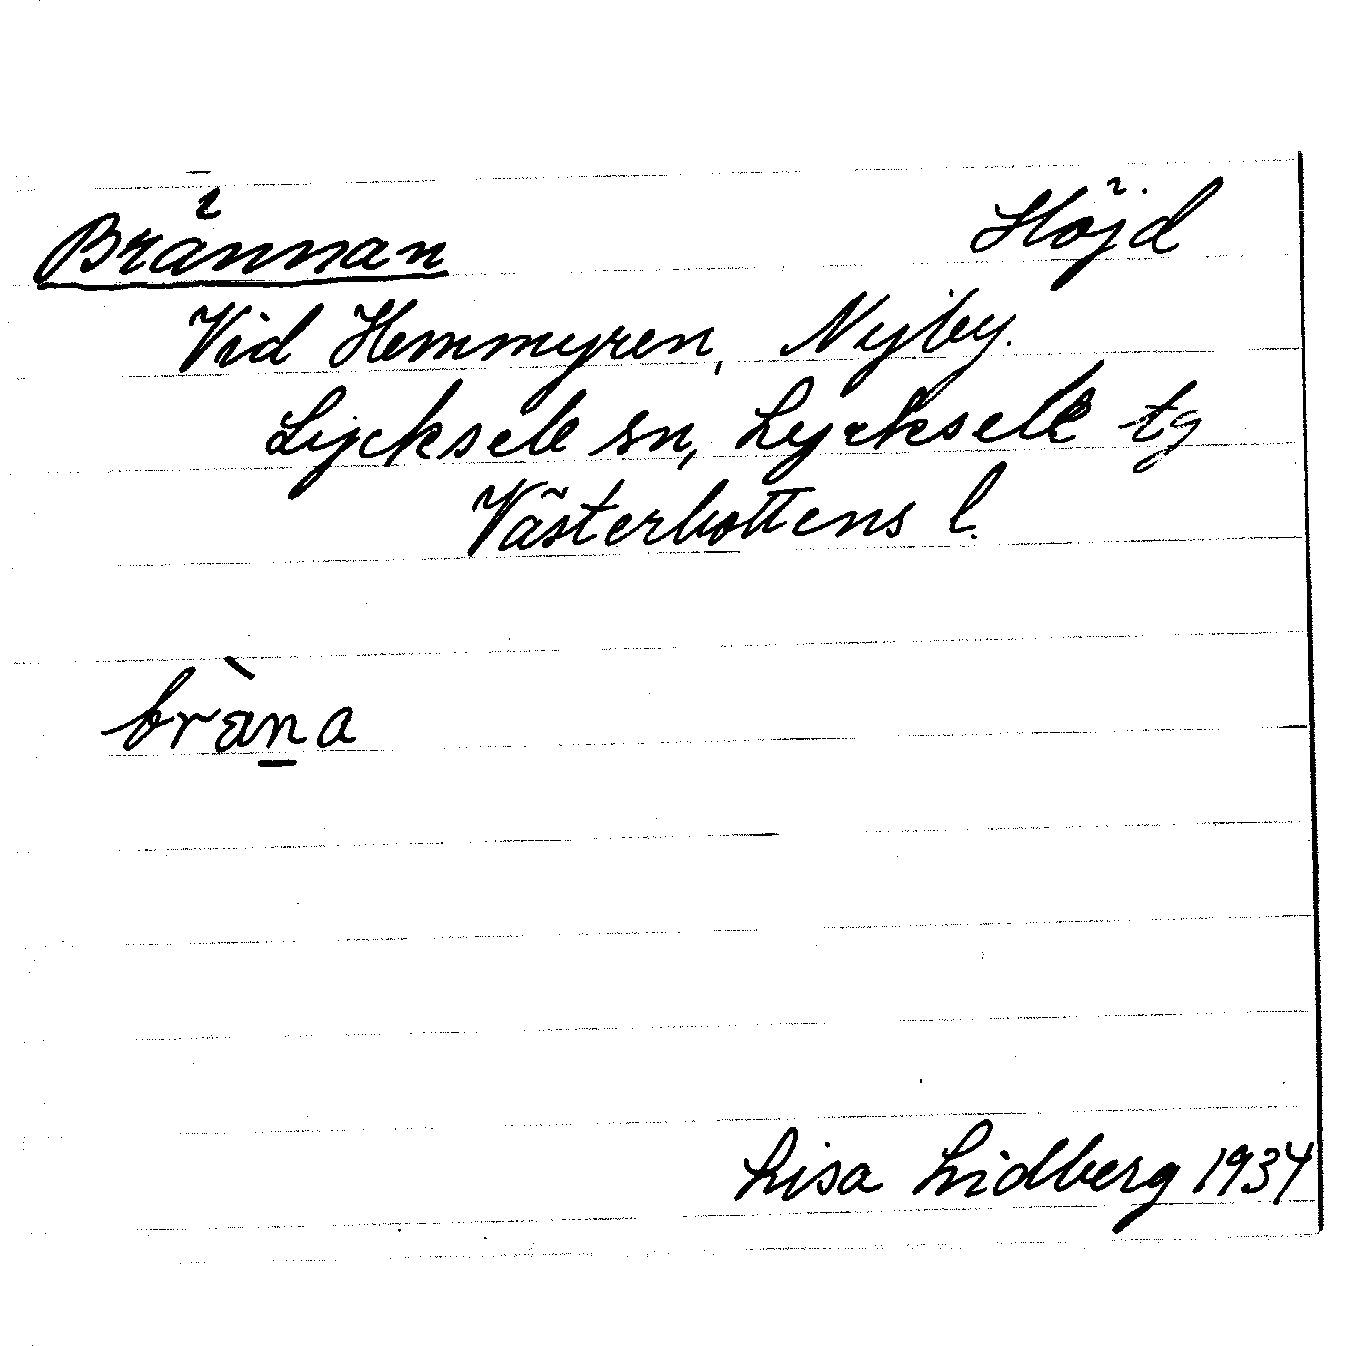 Brännan Höjd
Vid Hemmyren, Nyby.
Lycksele sn, Lycksele tg
Västerbottens l.
bræ̀n̲a
Lisa Lidberg 1934